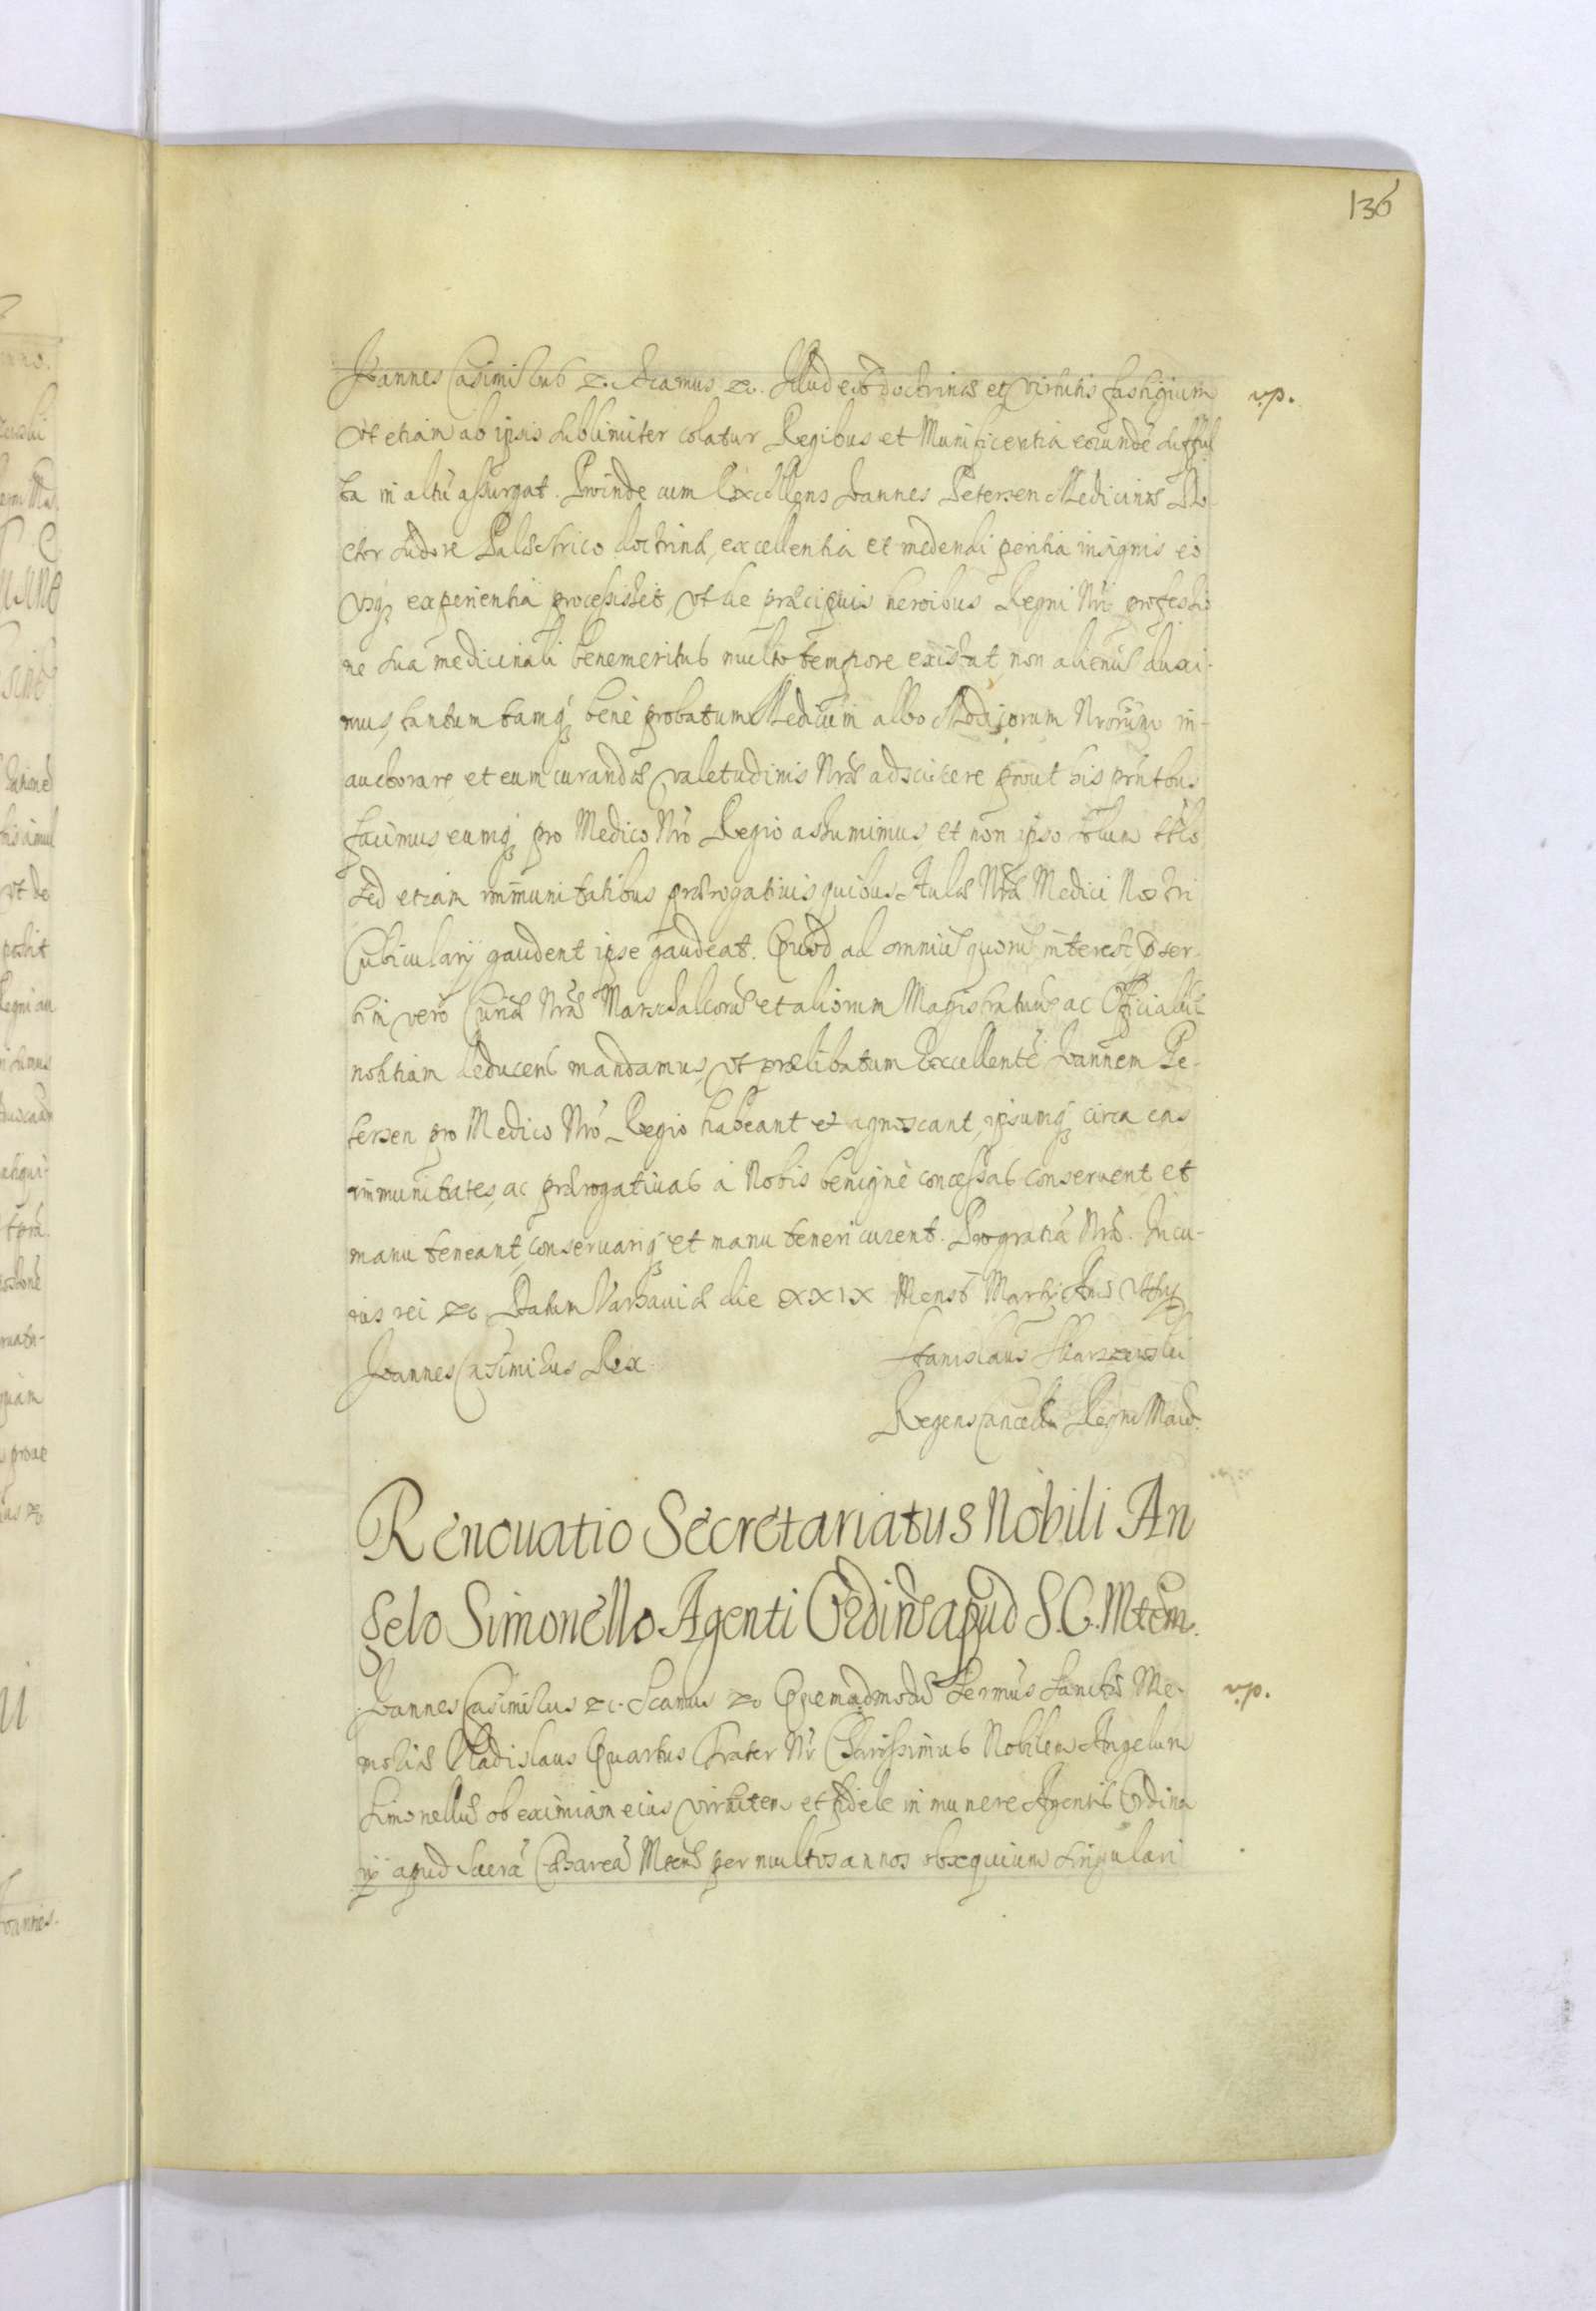 136
Joannes Casimirus etc. Scamus etc. Illud est doctrinæ et virtutis fastigium
vt etiam ab ipsis sublimiter colatur Regibus et Munificentia eorundē sufful
ta in altū assurgat. Proinde cum Excellens Joannes Petersen Medicinæ Do-
ctor sudore Palæstrico doctrina, excellentia et medendi peritia insignis eò
vsq3 experientia processisset, vt de præcipuis heroibus Regni Nri professio
ne sua medicinali benemeritus multo tempore existat, non alienū duxi-
mus, tantum tamq3 benè probatum Medicum albo Medicorum Nrorum in-
auctorare, et eum curandæ valetudinis Nræ adsciscere prout his prntbus
facimus eumq3 pro Medico Nrō Regio assumimus et non ipso solum ttlo
sed etiam immunitatibus prærogatiuis quibus Aulæ Nræ Medici Nostri
Cubicularij gaudent ipse gaudeat. Quod ad omniū quorū interest, præser-
tim vero Curiæ Nræ Marschalcorū et aliorum Magistratuū ac Officialiū
notitiam deducens mandamus, vt prælibatum Excellentē Joannem Pe-
tersen pro Medico Nrō Regio habeant et agnoscant, ipsumq3 circa eas
immunitates, ac prærogatiuas à Nobis benignè concessas conseruent et
manu teneant, conseruariq3 et manu teneri curent. Pro gratiā Nrā. In cu-
ius rei etc. Datum Varsauiæ die XXIX Mensis Martij Anō Vtsu
Joannes Casimirus Rex
Stanislaus Skarszewski
Regens Cancell. Regni Maio.
Renouatio Secretariatus Nobili An
gelo Simonello Agenti Ordinō apud S.C. Mtem.
Joannes Casimirus etc. Scamus etc Quemadmodū Sermus Sanctæ Me-
moriæ Vladislaus Quartus Frater Nr Charissimus Nobilem Angelum
Simonellū ob eximiam eius virtutem et fidele in munere Agentis Ordina
rij apud Sacrā Cæsareā Mtem per multos annos obsequium singulari